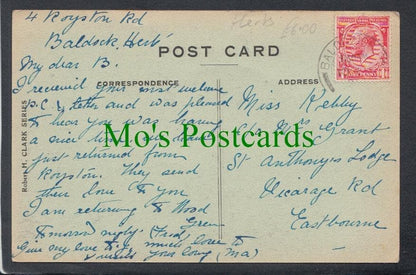 4 Royston Rd
Baldock, Herts
Herts £6.00
POST CARD
CORRESPONDENCE
ADDRESS
BALDOCK
ONE PENNY
My dear B.
I received your most welcome
P.C. & letter and was pleased
to hear you was having
a nice
just returned from
Royston. They send
their love to you
I am returning to Wood
Green
Tomorrow night (Fred)
Give my love to
much love to
yours lovey (Ma)
Miss Kebby
C/o Mrs Grant
St Anthony's Lodge
Vicarage Rd
Eastbourne
Robert H. CLARK SERIES
Mo's Postcards